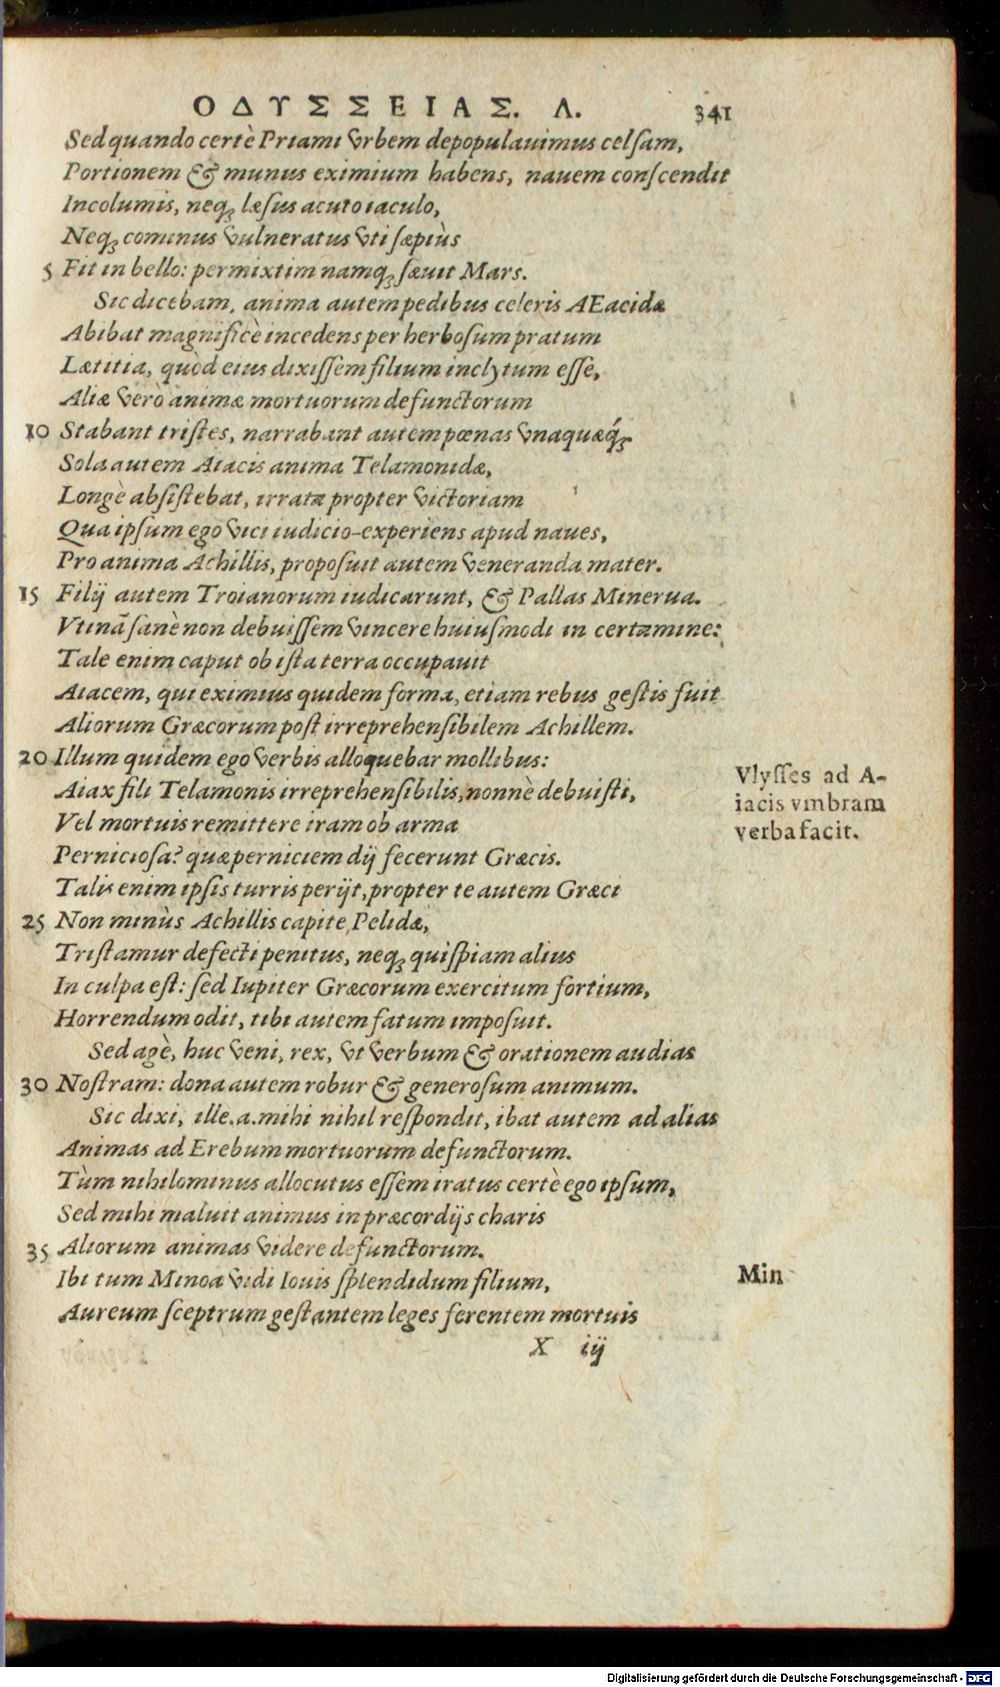 ΟΔΥΣΣΕΙΑΣ. Λ. 341
Sed quando certè Priami vrbem depopulauimus celſam,
Portionem & munus eximium habens, nauem conſcendit
Incolumis, neq; læſus acuto iaculo,
Neq; cominus vulneratus vti ſæpiùs
5 Fit in bello: permixtim namq; ſæuit Mars.
Sic dicebam, anima autem pedibus celeris AEacidæ
Abibat magnificè incedens per herboſum pratum
Lætitia, quòd eius dixiſſem filium inclytum eſſe,
Aliæ verò animæ mortuorum defunctorum
10 Stabant triſtes, narrabant autem pœnas vnaquæq́;.
Sola autem Aiacis anima Telamonidæ,
Longè abſiſtebat, irratæ propter victoriam
Qua ipſum ego vici iudicio-experiens apud naues,
Pro anima Achillis, propoſuit autem veneranda mater.
15 Filij autem Troianorum iudicarunt, & Pallas Minerua.
Vtinā ſanè non debuiſſem vincere huiuſmodi in certamine:
Tale enim caput ob iſta terra occupauit
Aiacem, qui eximius quidem forma, etiam rebus geſtis fuit
Aliorum Græcorum poſt irreprehenſibilem Achillem.
20 Illum quidem ego verbis alloquebar mollibus:
Aiax fili Telamonis irreprehenſibilis, nonnè debuiſti,
Vel mortuis remittere iram ob arma
Pernicioſa? quæ perniciem dij fecerunt Græcis.
Talis enim ipſis turris perijt, propter te autem Græci
25 Non minùs Achillis capite Pelidæ,
Triſtamur defecti penitus, neq; quiſpiam alius
In culpa eſt: ſed Iupiter Græcorum exercitum fortium,
Horrendum odit, tibi autem fatum impoſuit.
Sed agè, huc veni, rex, vt verbum & orationem audias
30 Noſtram: dona autem robur & generoſum animum.
Sic dixi, ille.a.mihi nihil reſpondit, ibat autem ad alias
Animas ad Erebum mortuorum defunctorum.
Tùm nihilominus allocutus eſſem iratus certè ego ipſum,
Sed mihi maluit animus in præcordijs charis
35 Aliorum animas videre defunctorum.
Ibi tum Minoa vidi Iouis ſplendidum filium,
Aureum ſceptrum geſtantem leges ferentem mortuis
X iij
Vlyſſes ad A-
iacis vmbram
verba facit.
Min
Digitalisierung gefördert durch die Deutsche Forschungsgemeinschaft - DFG